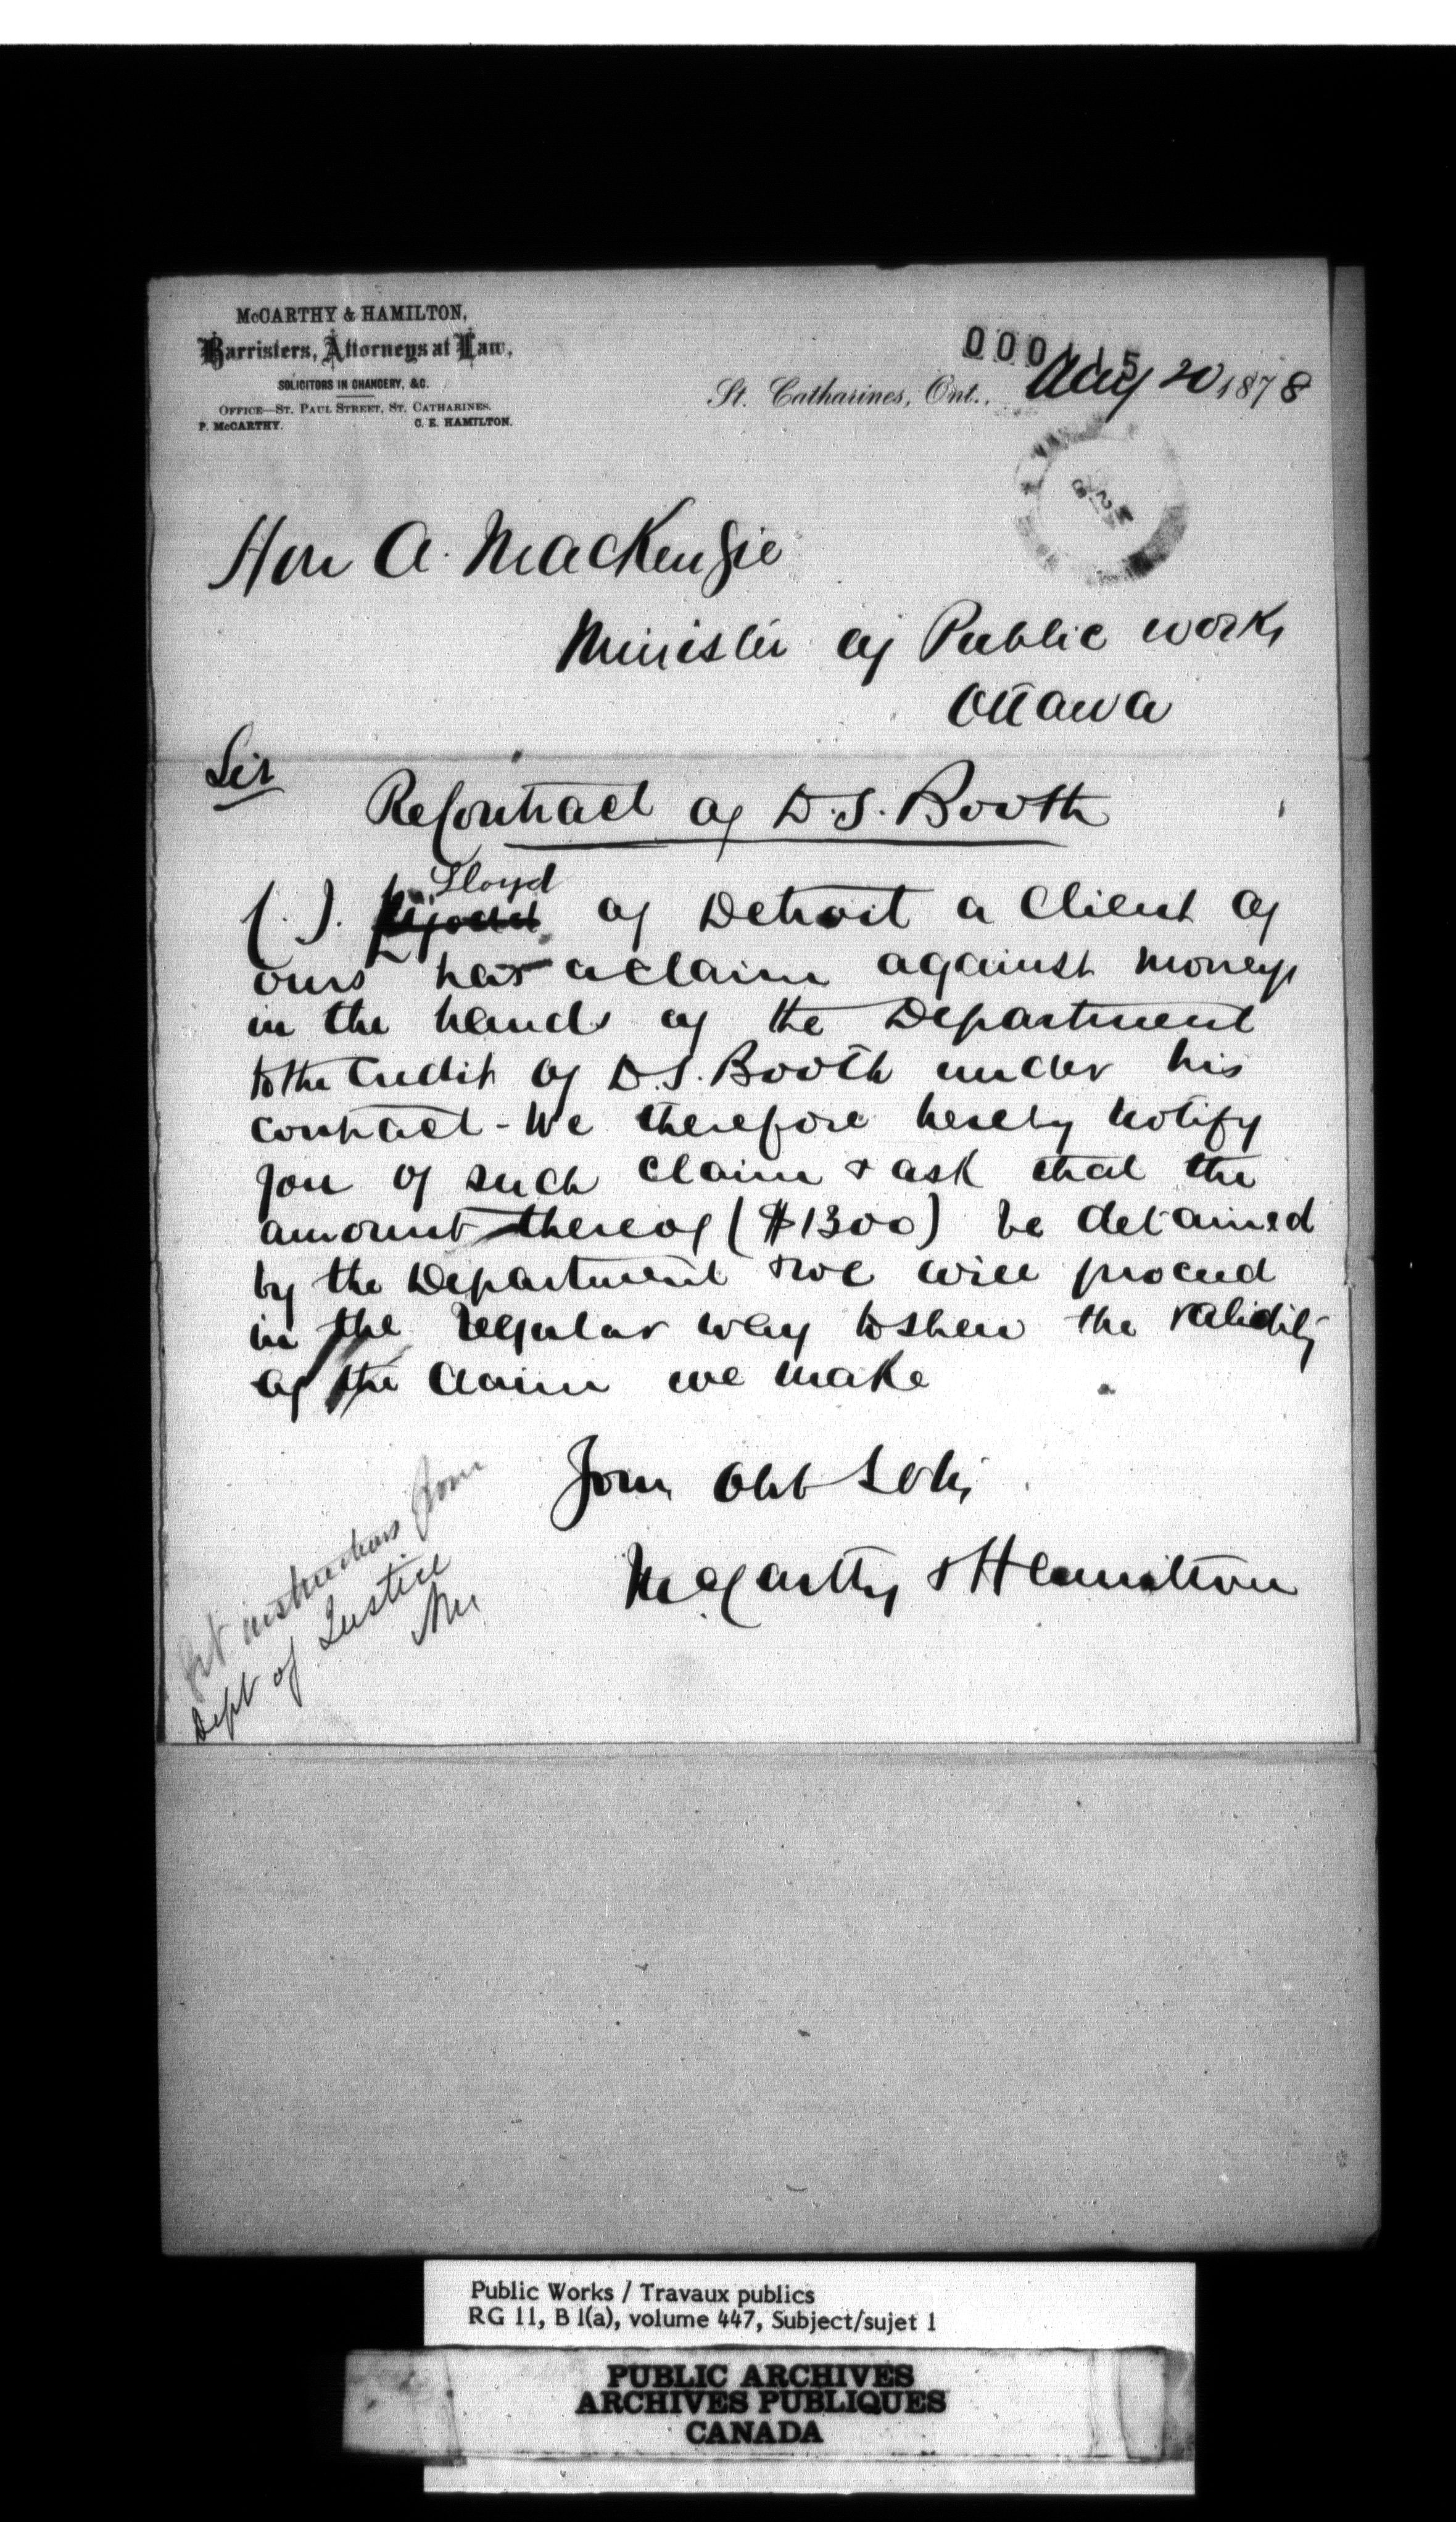 McCARTHY & HAMILTON,
Barristers, Attorneys at Law,
SOLICITORS IN CHANCERY, &C.
OFFICE—ST. PAUL STREET, ST. CATHARINES.
P. McCARTHY. C. E. HAMILTON.
St. Catharines, Ont., Aug 20 1878
Hon A. MacKenzie
Minister of Public works
Ottawa
Sir
Re Contract of D.S. Booth
Lloyd
of Detroit a Client of
ours has a claim against moneys
in the hands of the Department
to the Credit of D.S. Booth under his
contract - We therefore hereby notify
you of such claim & ask that the
amount thereof ($1300) be detained
by the Department & we will proceed
in the regular way to shew the validity
of the claim we make
Your Obt Solrs
McCarthy & Hamilton
Get instructions from
Dept of Justice
Public Works / Travaux publics
RG 11, B 1(a), volume 447, Subject/sujet 1
PUBLIC ARCHIVES
ARCHIVES PUBLIQUES
CANADA